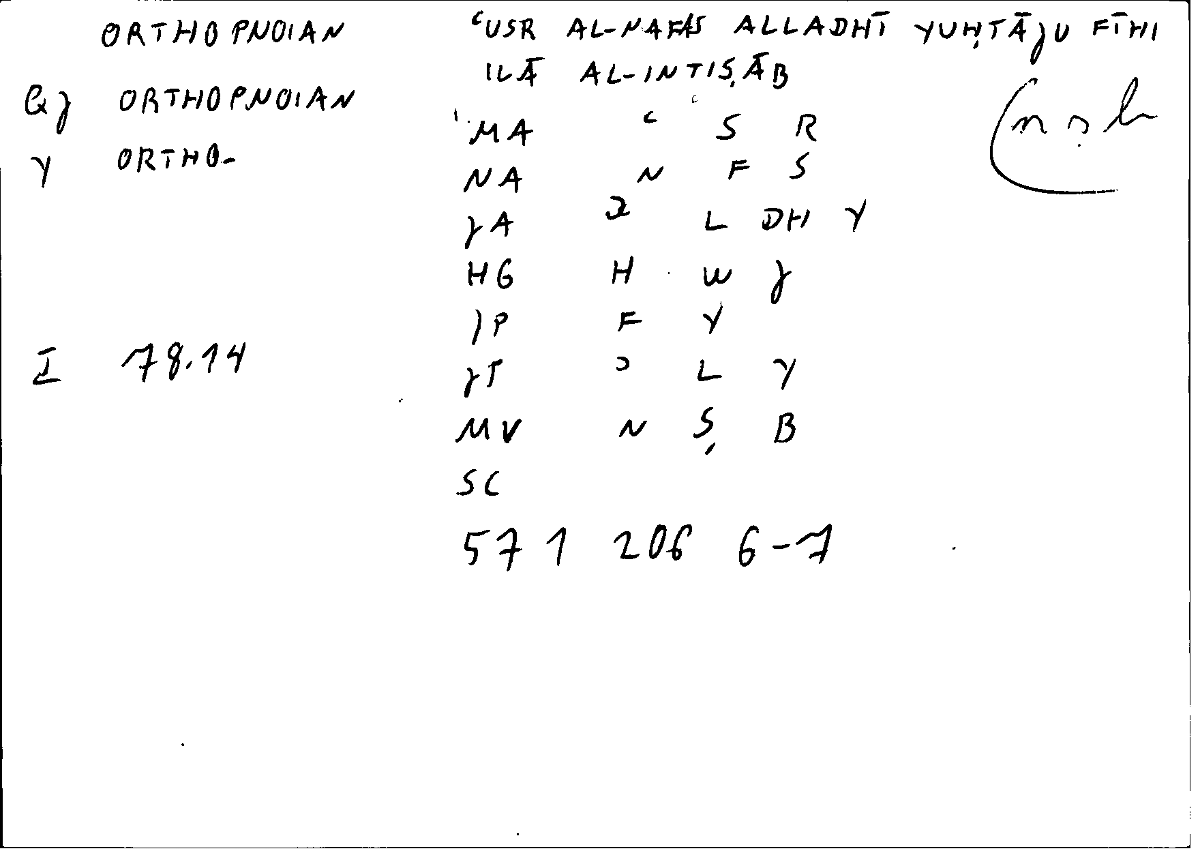 ORTHOPNOIAN ʿUSR AL-NAFAS ALLADHĪ YUḤTĀJU FĪHI
ILĀ AL-INTIṢĀB
QJ ORTHOPNOIAN
MA ʿ S R (n ṣ b
Y ORTHO-
NA N F S
JA ʾ L DH Y
HG H W J
JP F Y
I 78.14
JT ʾ L Y
MV N Ṣ B
SC
571 206 6-7